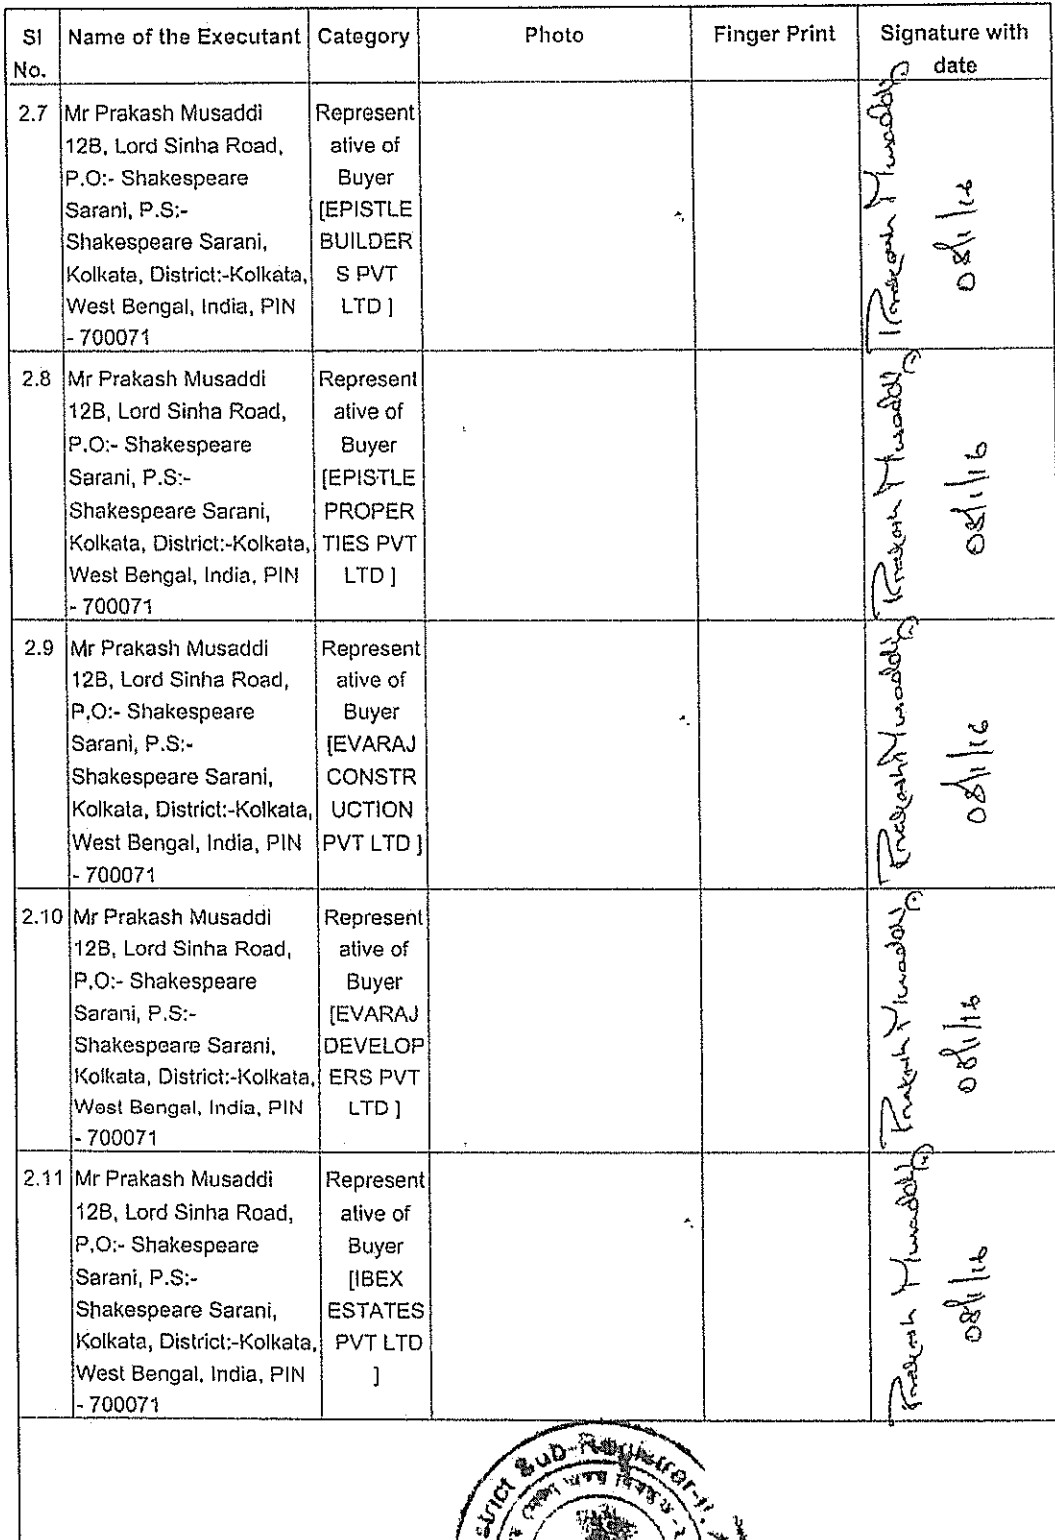 Sl No. Name of the Executant Category Photo Finger Print Signature with date
2.7 Mr Prakash Musaddi
12B, Lord Sinha Road,
P.O:- Shakespeare
Sarani, P.S:-
Shakespeare Sarani,
Kolkata, District:-Kolkata,
West Bengal, India, PIN
- 700071
Represent
ative of
Buyer
[EPISTLE
BUILDER
S PVT
LTD ]
Prakash Musaddi
08/1/16
2.8 Mr Prakash Musaddi
12B, Lord Sinha Road,
P.O:- Shakespeare
Sarani, P.S:-
Shakespeare Sarani,
Kolkata, District:-Kolkata,
West Bengal, India, PIN
- 700071
Represent
ative of
Buyer
[EPISTLE
PROPER
TIES PVT
LTD ]
Prakash Musaddi
08/1/16
2.9 Mr Prakash Musaddi
12B, Lord Sinha Road,
P.O:- Shakespeare
Sarani, P.S:-
Shakespeare Sarani,
Kolkata, District:-Kolkata,
West Bengal, India, PIN
- 700071
Represent
ative of
Buyer
[EVARAJ
CONSTR
UCTION
PVT LTD ]
Prakash Musaddi
08/1/16
2.10 Mr Prakash Musaddi
12B, Lord Sinha Road,
P.O:- Shakespeare
Sarani, P.S:-
Shakespeare Sarani,
Kolkata, District:-Kolkata,
West Bengal, India, PIN
- 700071
Represent
ative of
Buyer
[EVARAJ
DEVELOP
ERS PVT
LTD ]
Prakash Musaddi
08/1/16
2.11 Mr Prakash Musaddi
12B, Lord Sinha Road,
P.O:- Shakespeare
Sarani, P.S:-
Shakespeare Sarani,
Kolkata, District:-Kolkata,
West Bengal, India, PIN
- 700071
Represent
ative of
Buyer
[IBEX
ESTATES
PVT LTD
]
Prakash Musaddi
08/1/16
Sub-Registrar-II